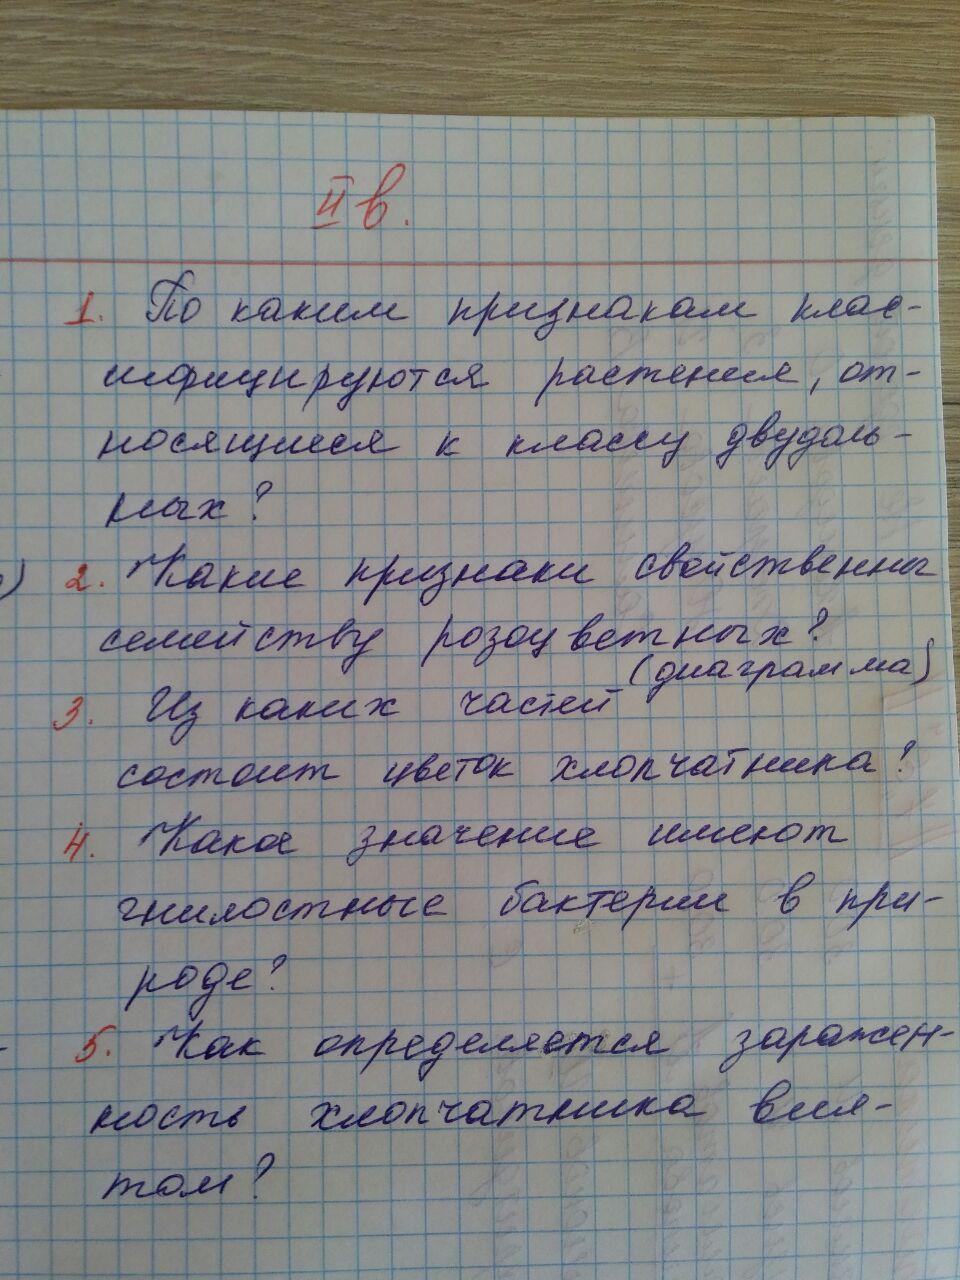 II в.
1. По каким признакам клас-
сифицируются растения, от-
носящиеся к классу двудоль-
ных?
2. Какие признаки свойственны
семейству розоцветных?
(диаграмма)
3. Из каких частей
состоит цветок хлопчатника?
4. Какое значение имеют
гнилостные бактерии в при-
роде?
5. Как определяется заражен-
ность хлопчатника вил-
том?